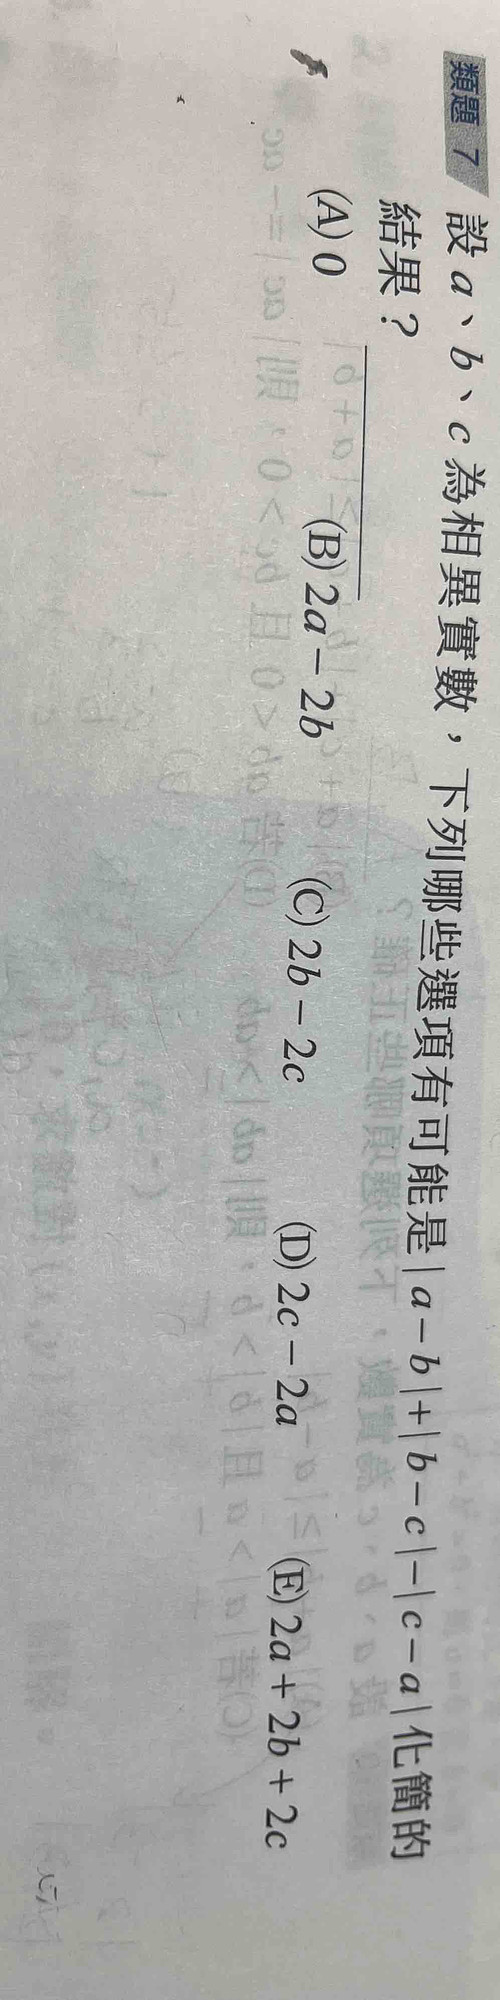 類題 7
設 a、b、c 為相異實數，下列哪些選項有可能是|a－b|＋|b－c|－|c－a|化簡的
結果？
(A) 0 (B) 2a－2b (C) 2b－2c (D) 2c－2a (E) 2a＋2b＋2c